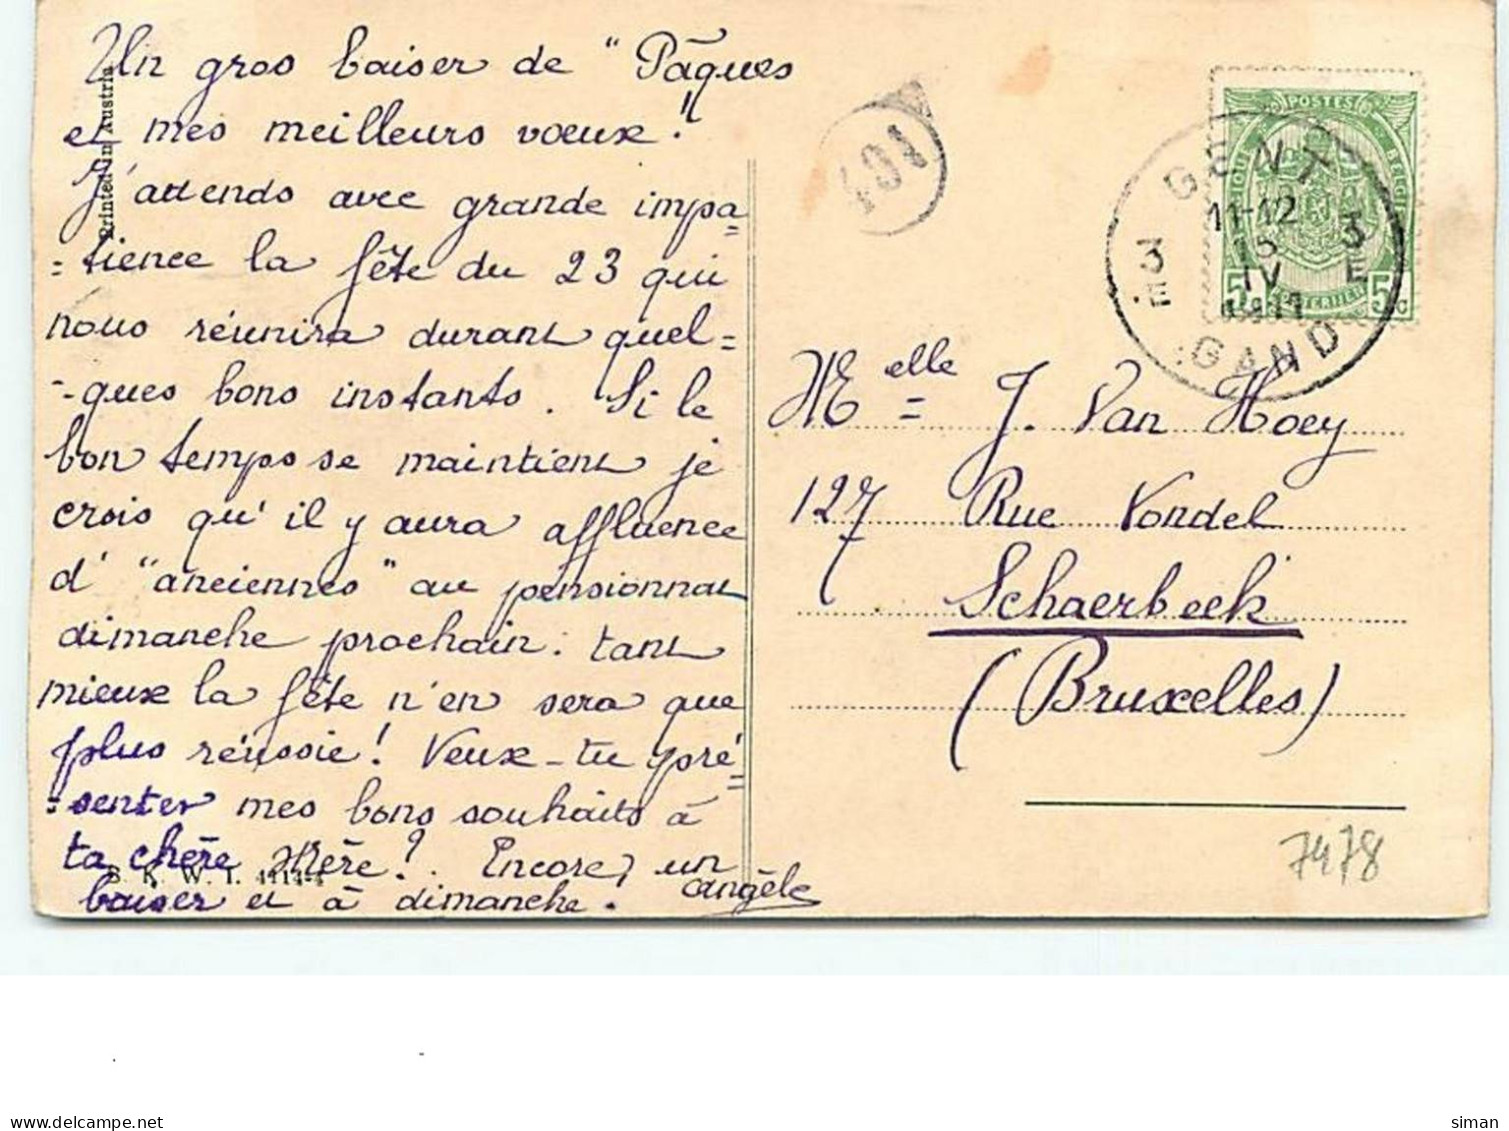 Un gros baiser de "Pâques
et mes meilleurs voeux!"
J'attends avec grande impa=
=tience la fête du 23 qui
nous réunira durant quel=
=ques bons instants. Si le
bon temps se maintient je
crois qu'il y aura affluence
d' "anciennes" au pensionnat
dimanche prochain: tant
mieux la fête n'en sera que
plus réussie! Veux-tu pré=
=senter mes bons souhaits à
ta chère Mère? Encore, un
baiser et à dimanche. Angèle
Printed in Austria
S. K. W. I.
401
POSTES
5c 5c
GENT
11-12
IV
1911
3 E
3 E
GAND
Melle J. Van Hoey
127 Rue Vondel
Schaerbeek
(Bruxelles)
7478
www.delcampe.net
siman